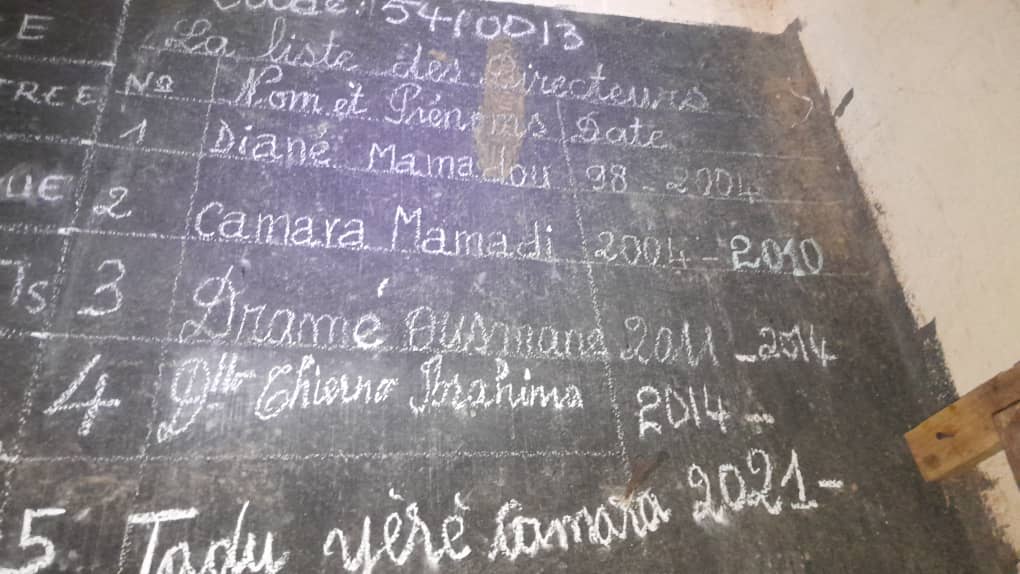 Code: 5410013
E La liste des Directeurs
TREE Nº Nom et Prénoms Date
1 Diané Mamadou 98 - 2004
UE 2 Camara Mamadi 2004 - 2010
Ts 3 Dramé Ousmane 2011 - 2014
4 Dllo Thierno Ibrahima 2014 -
5 Tadu yèrè Camara 2021 -